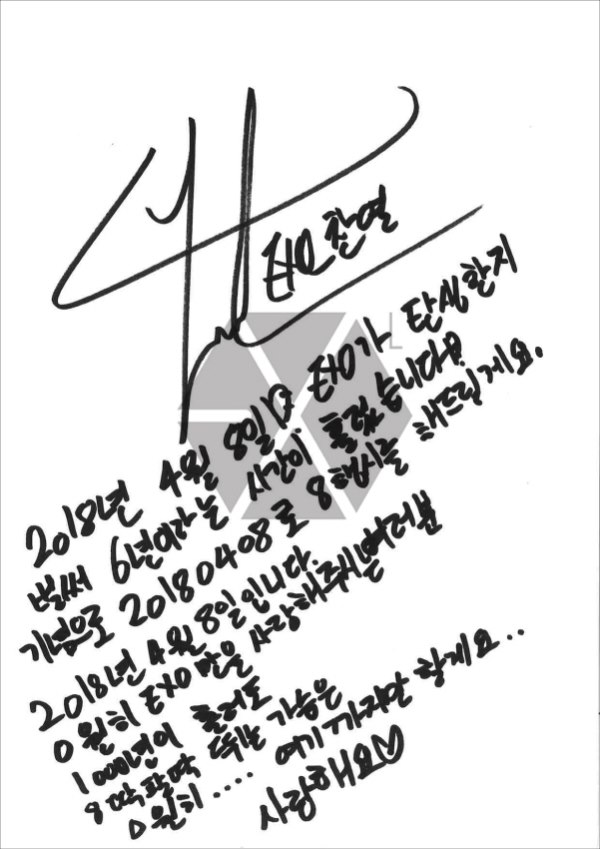 EXO 찬열
L
2018년 4월 8일 EXO가 탄생한지
벌써 6년이라는 시간이 흘렀습니다!?
기념으로 20180408로 8행시를 해드릴게요.
2018년 4월 8일입니다.
0 원히 EXO 만을 사랑해주시는 여러분
1 000년이 흘러도
8 딱팔딱 뛰는 가슴은
0 원히.... 여기까지만 할게요..
사랑해요♡